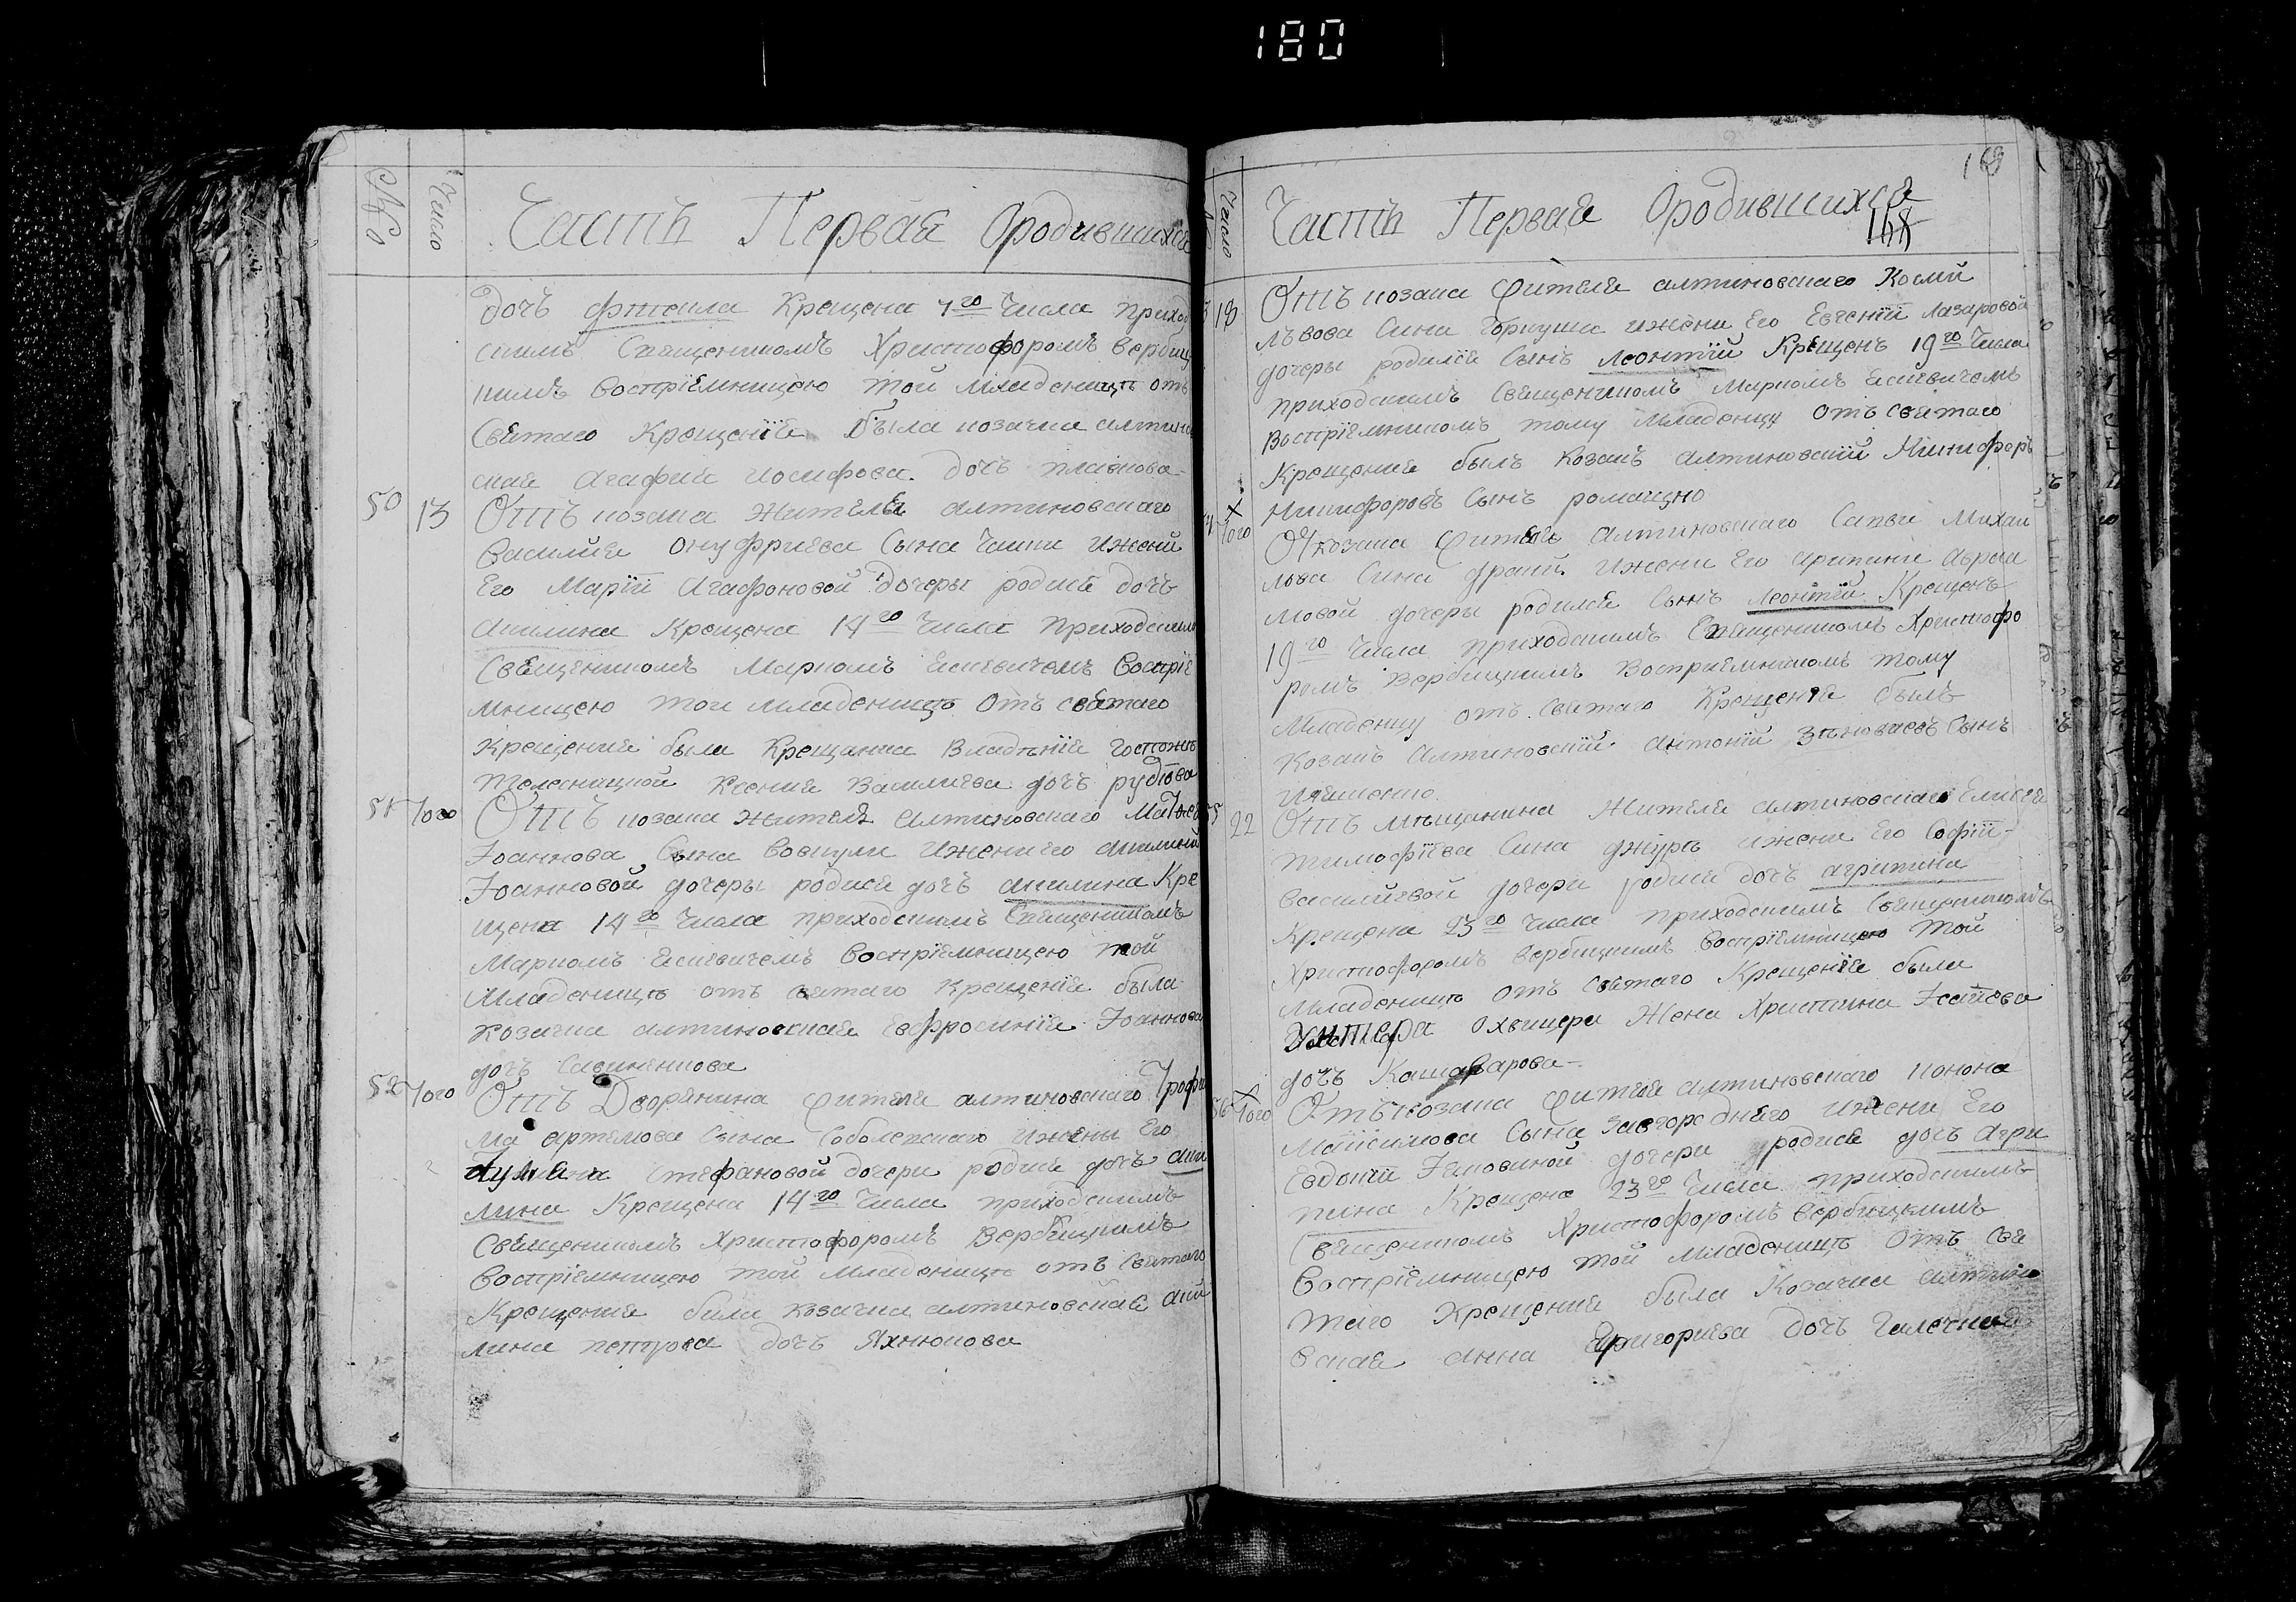 180
№
Число
Часть Первая Ородившихся
дочь Фтекла Крещена 7го Числа приход
скимъ Священникомъ Христофоромъ Вербиц
кимъ Воспріемницею той Младеницѣ отъ
Святаго Крещенія Была козачка алтинов
ская Агафия Иосифова дочь
50 13 Отъ козака жителя алтиновскаго
Василия Онуфриева Сына Чайки ижены
Его Маріи Агафоновой дочеры родися дочь
Акилина Крещена 14го Числа приходским
Священникомъ Маркомъ Воспріе
мницею той младеницѣ Отъ святаго
Крещения была Крещанка Владѣнія Госпожи
Ксения Василиева дочь
51 Того Отъ козака жителя алтиновскаго Матфея
Іоаннова Сына Вовкули ижени его акилини
Іоанновой дочеры родися дочь акилина Кре
щена 14го Числа приходскимъ Священникомъ
Маркомъ Воспріемницею той
Младеницѣ отъ святаго крещенія была
козачка алтиновская Евфросинія Іоаннова
дочь
52 Того Отъ Дворянина жителя алтиновскаго Трофи
ма артемова Сына Соболевскаго ижены Его
Стефановой дочери родися дочь аки
лина Крещена 14го Числа приходскимъ
Священникомъ Христофоромъ Вербицкимъ
Воспріемницею той Младеницѣ отъ Святаго
Крещения была козачка алтиновская аки
лина петрова дочь Яхнюкова
169
Число
Часть Первая Ородившихся
168
18 Отъ козака жителя алтиновскаго Космы
львова Сина ижени Его Евгеніи лазаровой
дочеры родился Сынъ Леонтій Крещенъ 19го Числа
приходскимъ Священникомъ Маркомъ
Воспріемникомъ тому младенцу отъ святаго
Крещения былъ Козакъ Алтиновскій Никифоръ
Никифоровъ Сынъ ромащко
Того От козака жителя Алтиновскаго Савы Михаи
лова Сина ижени Его Авраа
мовой дочеры родился Сынъ Леонтій Крещенъ
19го Числа приходскимъ Священникомъ Христофо
ромъ Вербицкимъ Восприемникомъ тому
Младенцу отъ Святаго Крещения былъ
Козакъ Алтиновскій Антоній Сынъ
55 22 Отъ Мѣщанина Жителя алтиновскаго Елисея
тимофіева Сина джури ижени Его Софіи
василиевой дочери родися дочь агрипина
Крещена 23го Числа приходскимъ Священникомъ
Христофоромъ вербицкимъ Воспріемницею той
Младеницѣ отъ Святаго Крещенія была
Унтера Охвицера Жена Христина
дочь Кашаварова
56 Того Отъ козака жителя алтиновскаго конона
Максимова Сына Завгороднего ижени Его
Евдокіи дочери родися дочь Агри
пина Крещена 23го Числа приходскимъ
Священникомъ Христофоромъ Вербицкимъ
Воспріемницею той младеницѣ Отъ Свя
таго Крещения была Козачка алтино
вская анна Григориева дочь